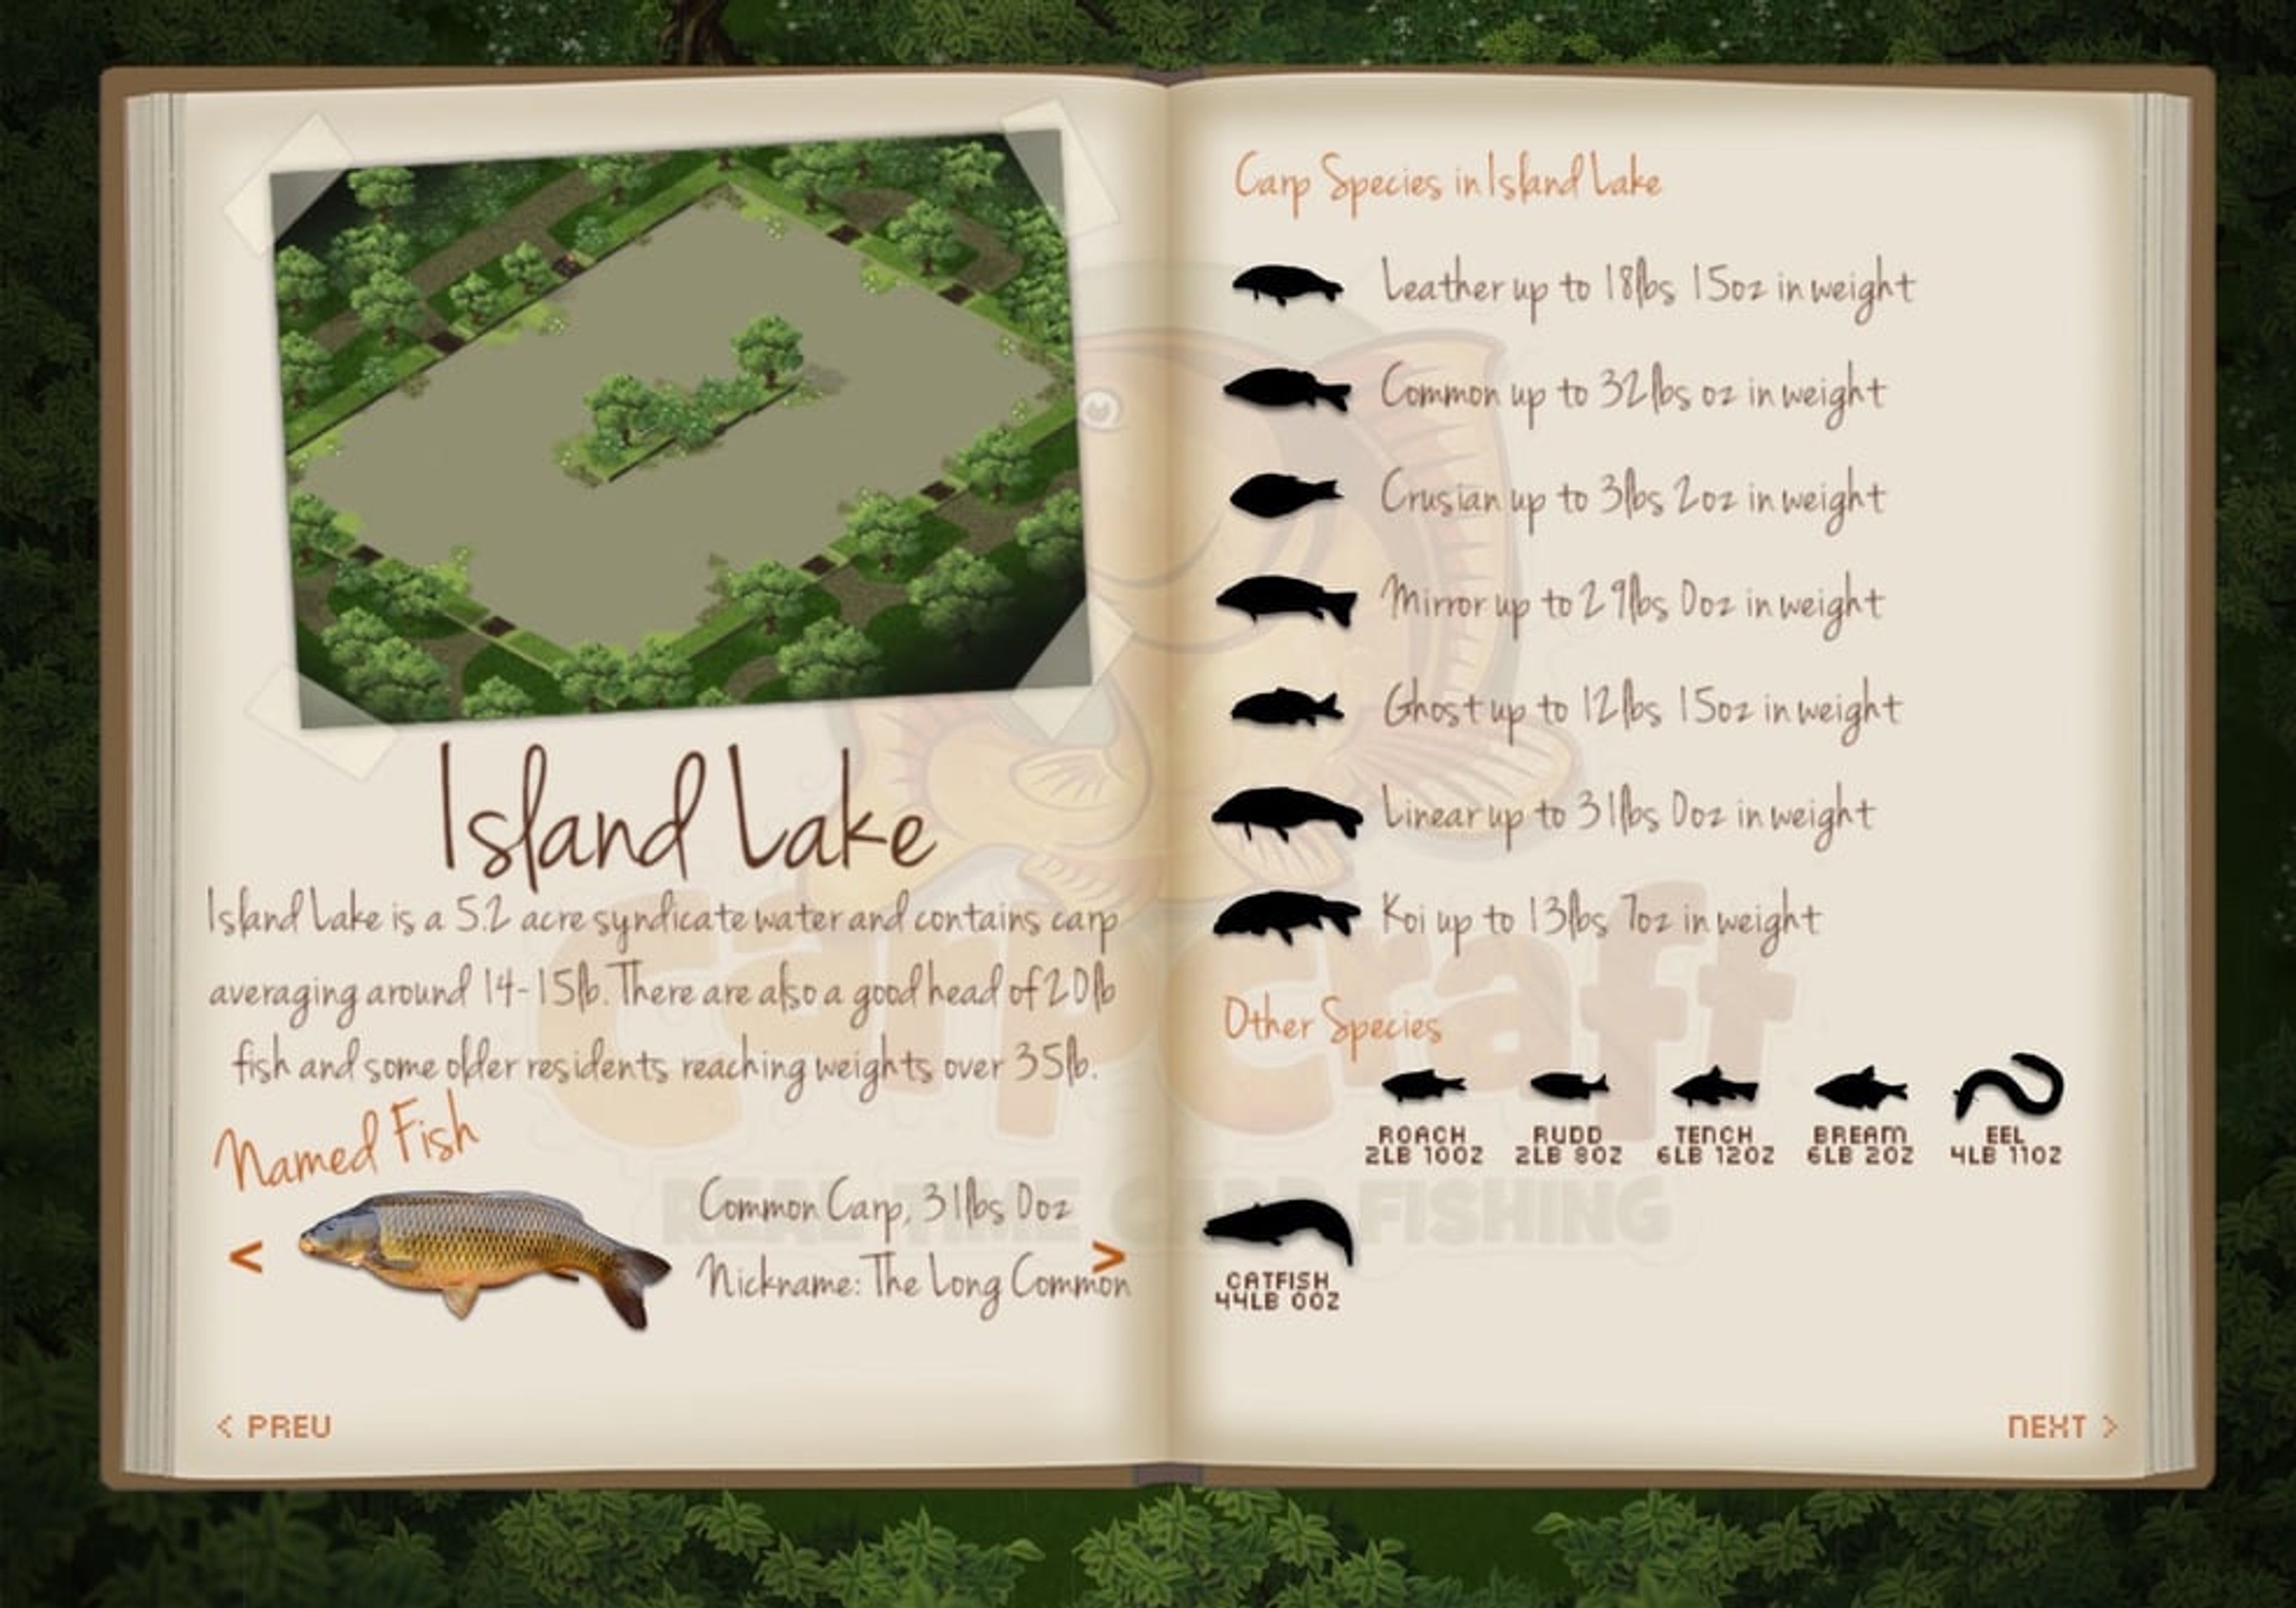 Island Lake
Island Lake is a 5.2 acre syndicate water and contains carp
averaging around 14-15lb. There are also a good head of 20lb
fish and some older residents reaching weights over 35lb.
Named Fish
Common Carp, 31lbs 0oz
Nickname: The Long Common
<
>
< PREV
Carp Species in Island Lake
Leather up to 18lbs 15oz in weight
Common up to 32lbs oz in weight
Crusian up to 3lbs 2oz in weight
Mirror up to 29lbs 0oz in weight
Ghost up to 12lbs 15oz in weight
Linear up to 31lbs 0oz in weight
Koi up to 13lbs 7oz in weight
Other Species
ROACH
2LB 10OZ
RUDD
2LB 8OZ
TENCH
6LB 12OZ
BREAM
6LB 2OZ
EEL
4LB 11OZ
CATFISH
44LB 0OZ
NEXT >
Carpcraft
REAL TIME CARP FISHING